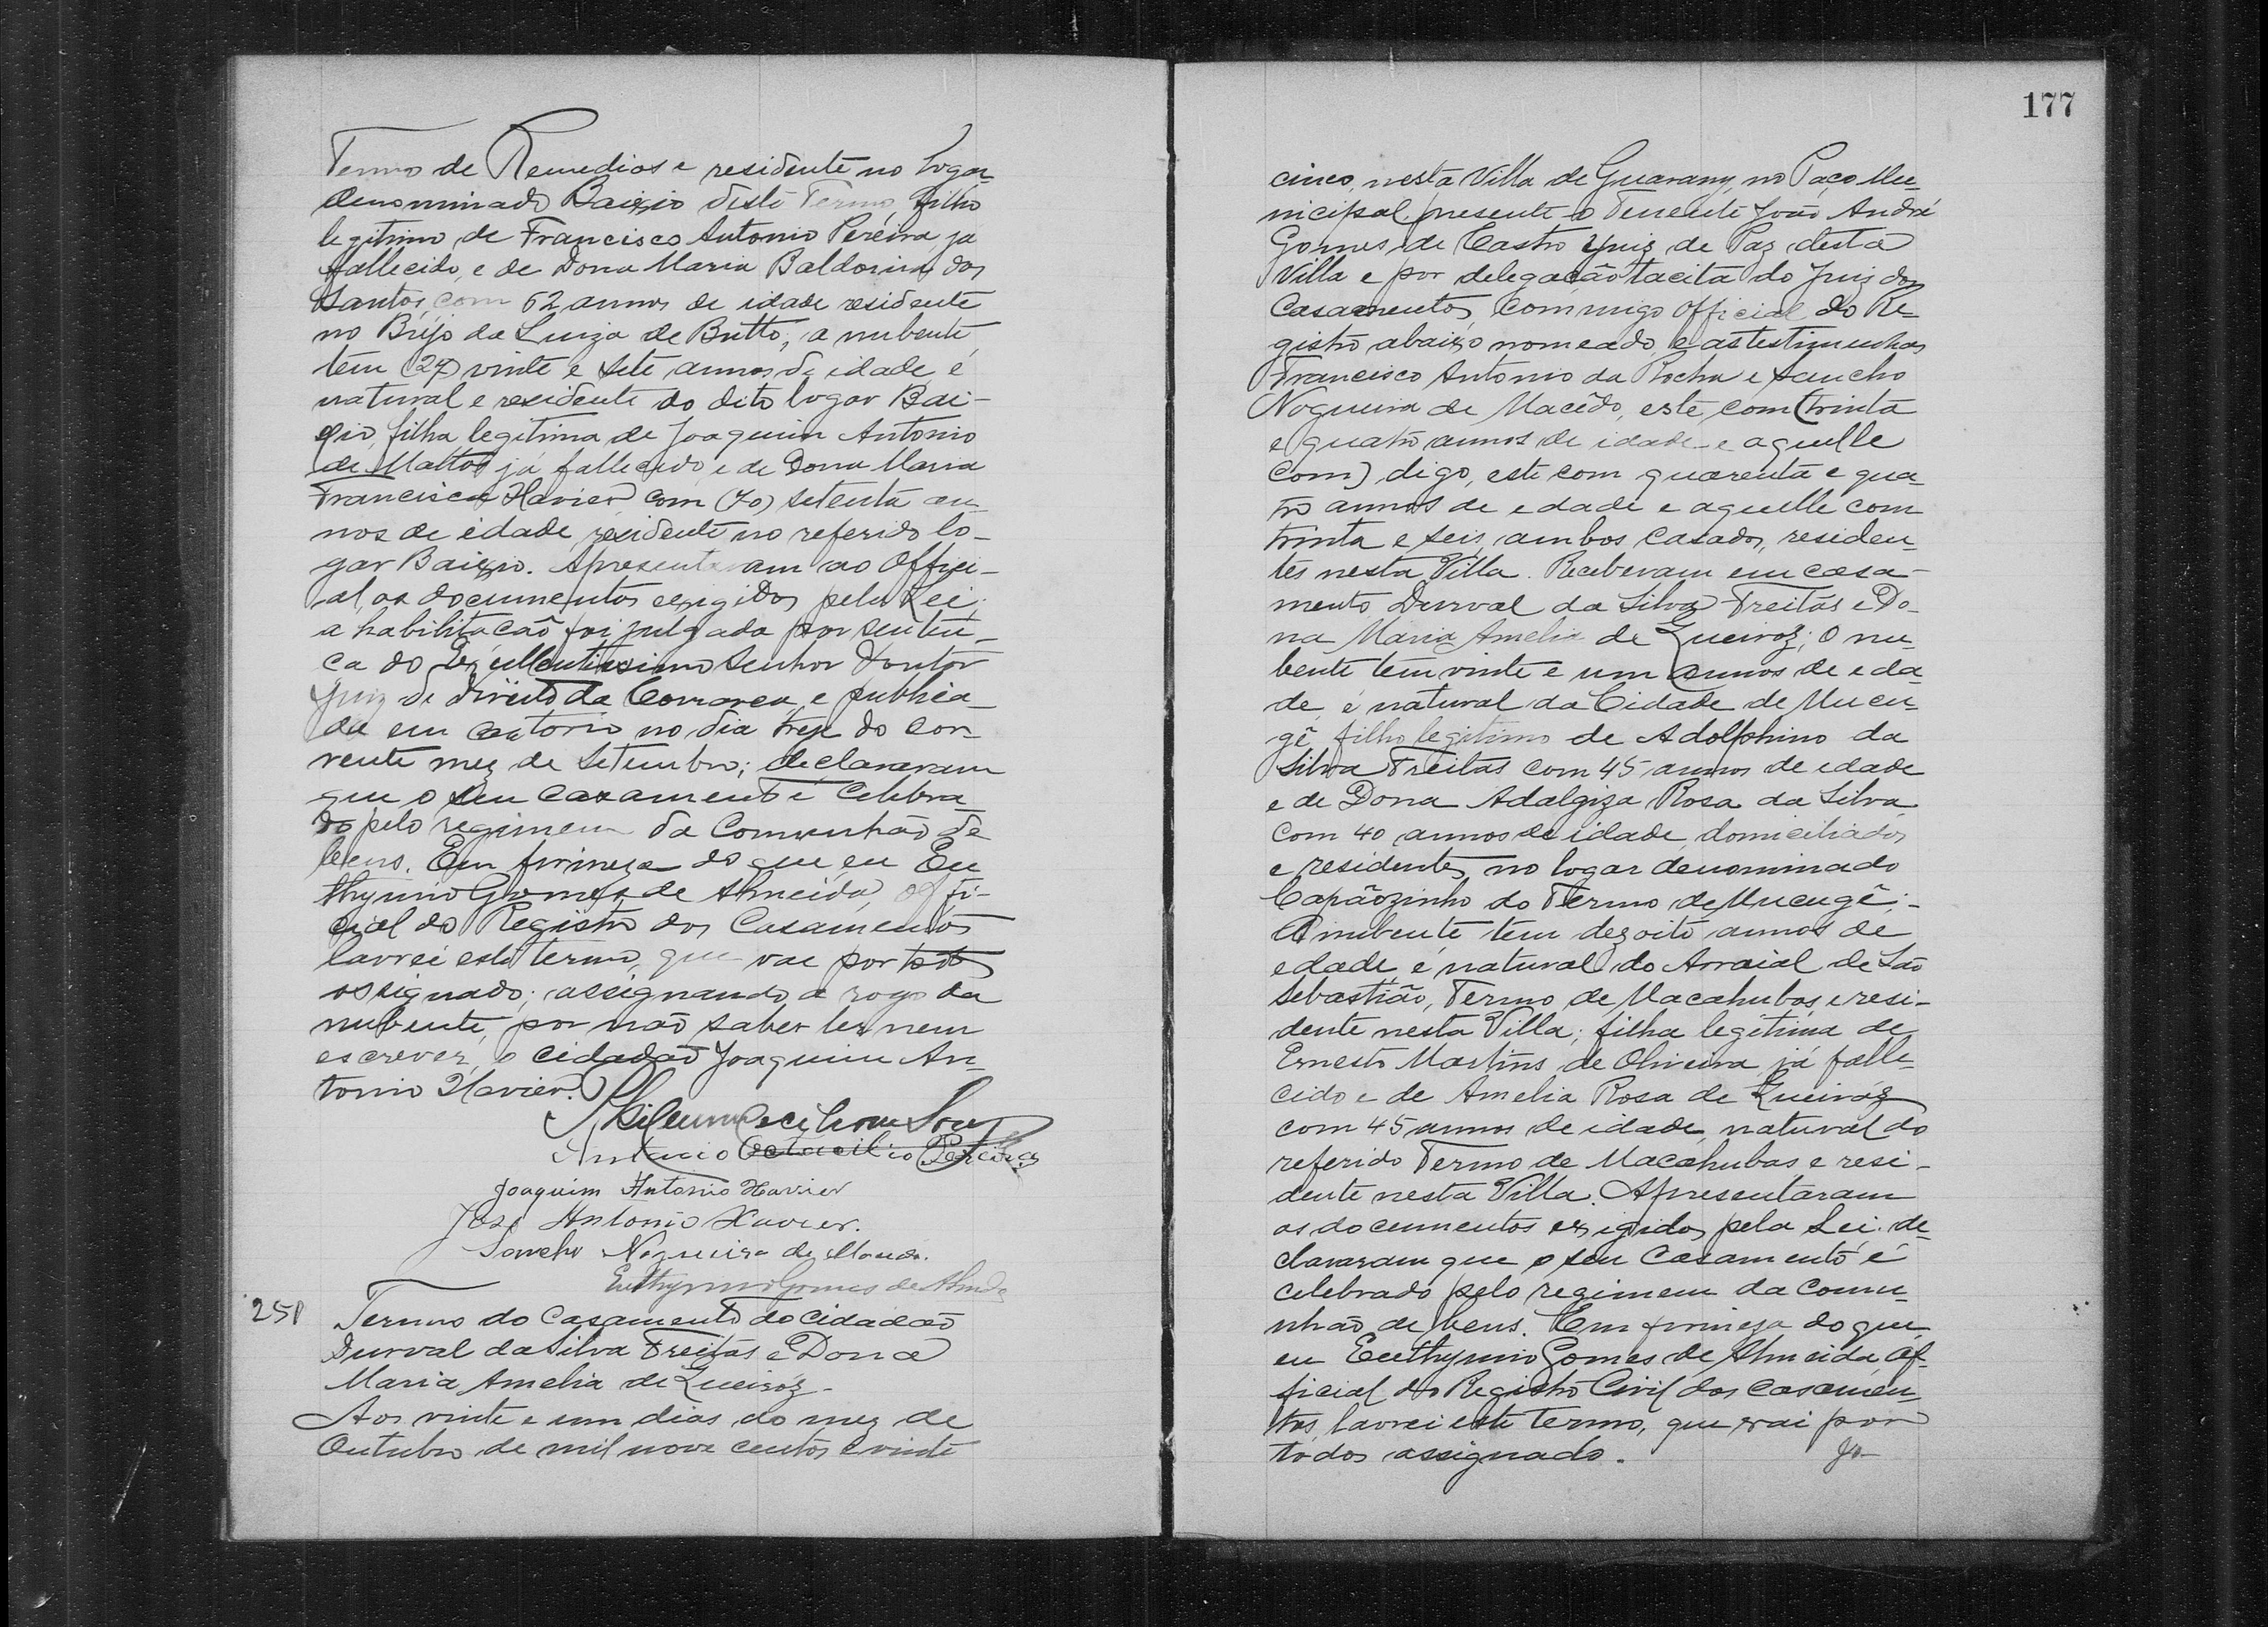 Termo de Remedios e residente no logar
denominado Baixio deste Termo, filho
legitimo de Francisco Antonio Pereira ja
fallecido, e de Dona Maria Baldoina dos
Santos, com 62 annos de idade residente
no Brejo da Luiza de Britto; a nubente
tem (27) vinte e sete annos de idade, é
natural e residente do dito logar Bai-
xio, filha legitima de Joaquim Antonio
de Mattos já fallecido, e de Dona Maria
Francisca Xavier com (70) setenta an-
nos de idade, residente no referido lo-
gar Baixio. Apresentaram ao Offici-
al, os documentos exigidos pela Lei;
a habilitação foi julgada por senten-
ça do Excellentissimo Senhor Doutor
Juiz de direito da Comarca, e publica-
da em cartorio no dia treze do cor-
rente mez de Setembro; declararam
que o seu casamento é celebra-
do pelo regimem da Comunhão de
bens. Em firmeza do que eu Eu
thymio Gomes de Almeida, offi-
cial do Registro dos Casamentos
lavrei este termo, que vae por todos
assignado; assignando a rogo da
nubente, por não saber ler nem
escrever, o cidadão Joaquim An-
tonio Xavier.
Antonio Octacilio Pereira
Joaquim Antonio Xavier
José Antonio Xavier.
Sancho Nogueira de Macedo.
Euthymio Gomes de Almeida
251 Termo do Casamento do cidadão
Durval da Silva Freitas e Dona
Maria Amelia de Queiroz.
Aos vinte e um dias do mez de
Outubro de mil nove centos e vinte
177
cinco, nesta Villa de Guarany, no Paço Mu-
nicipal, presente o Tenente João André
Gomes de Castro Juiz de Paz desta
Villa e por delegação tacita do Juiz dos
Casamentos, commigo official do Re-
gistro abaixo nomeado, e as testimunhas
Francisco Antonio da Rocha e Sancho
Nogueira de Macêdo, este com (trinta
e quatro annos de idade e aquelle
com) digo, este com quarenta e qua-
tro annos de edade e aquelle com
trinta e seis, ambos casados, residen-
tes nesta Villa. Receberam em casa-
mento Durval da Silva Freitas e Do-
na Maria Amelia de Queiroz; O nu-
bente tem vinte e um annos de eda-
de, é natural da Cidade de Mucu-
gê, filho legitimo de Adolphino da
Silva Freitas com 45 annos de edade
e de Dona Adalgiza Rosa da Silva
com 40 annos de idade, domiciliados
e residentes no logar denominado
Capãozinho do Termo de Mucugê;-
A nubente tem dezoito annos de
edade, é natural do Arraial de São
Sebastião, Termo de Macahubas, e resi-
dente nesta Villa; filha legitima de
Ernesto Martins de Oliveira já falle-
cido e de Amelia Rosa de Queiroz
com 45 annos de idade, natural do
referido Termo de Macahubas e resi-
dente nesta Villa. Apresentaram
os documentos exigidos pela Lei. de-
clararam que o seu casamento é
celebrado pelo regimem da comu-
nhão de bens. Em firmeza do que,
eu Euthymio Gomes de Almeida, of-
ficial do Registro Civil dos Casamen-
tos, lavrei este termo, que vai por
todos assignado. Jo-